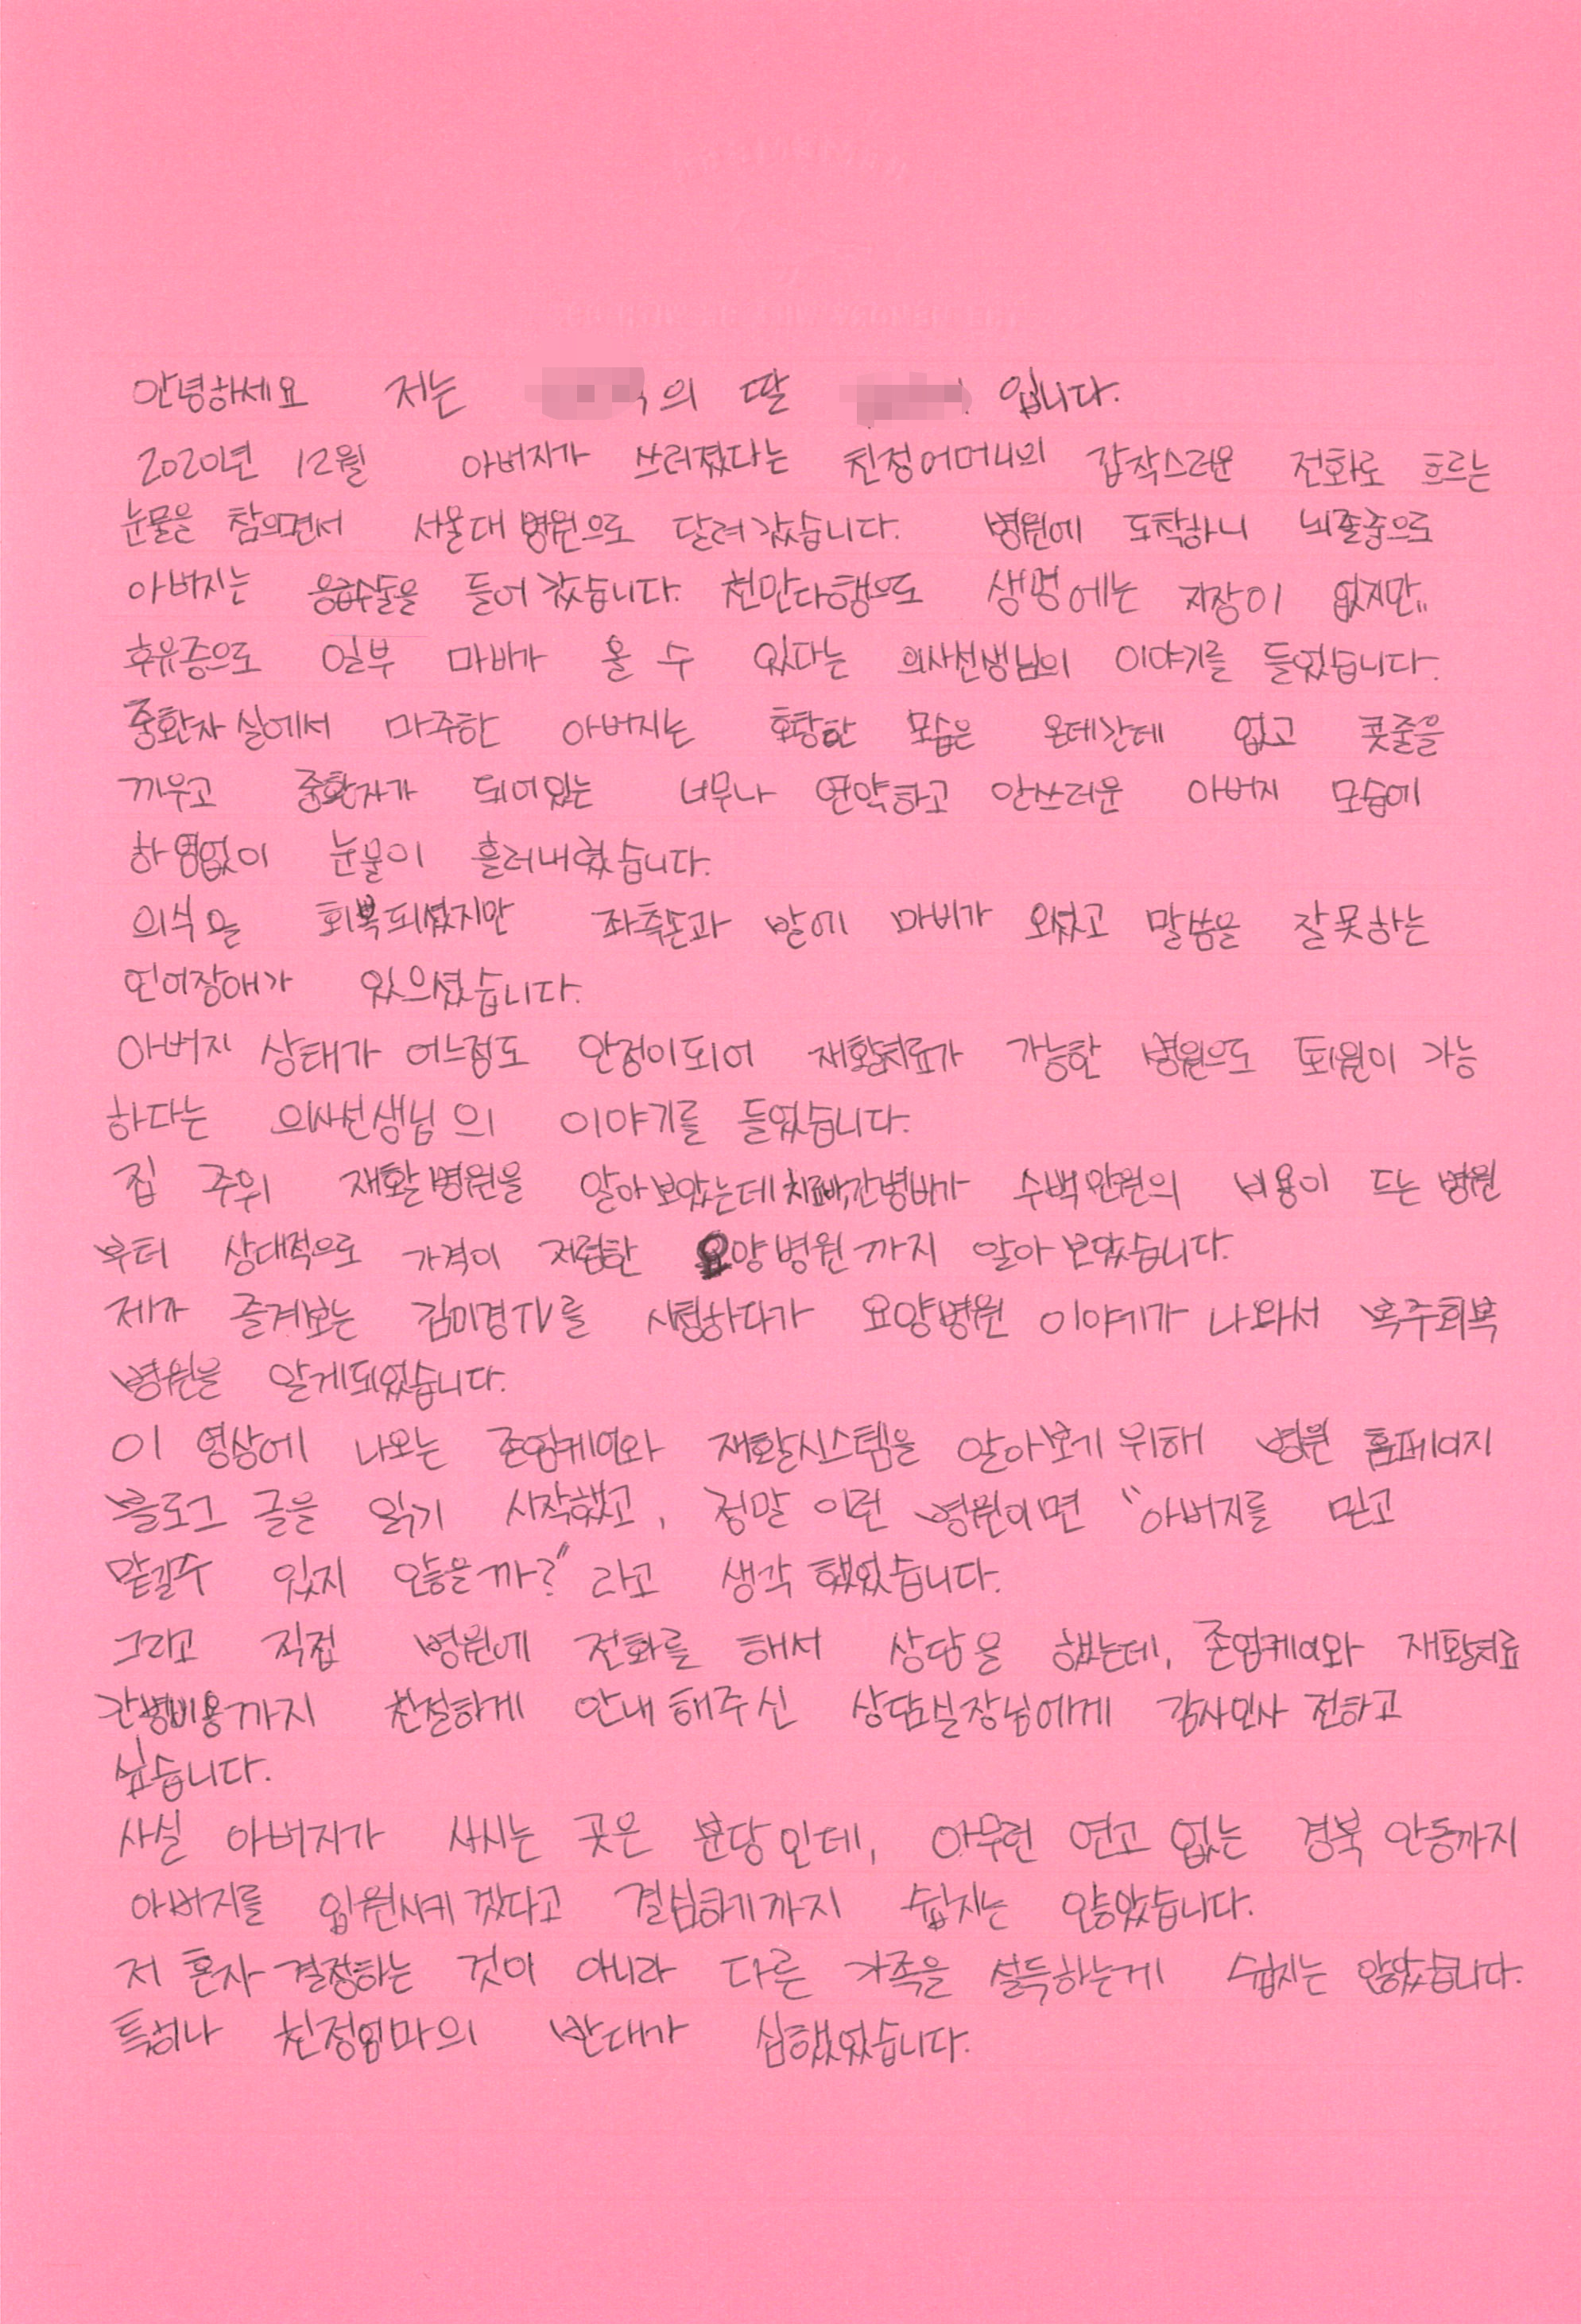 안녕하세요 저는 의 딸 입니다.
2020년 12월 아버지가 쓰러졌다는 친정어머니의 갑작스러운 전화로 흐르는
눈물을 참으면서 서울대병원으로 달려갔습니다. 병원에 도착하니 뇌졸중으로
아버지는 응급수술을 들어갔습니다. 천만다행으로 생명에는 지장이 없지만..
후유증으로 일부 마비가 올 수 있다는 의사선생님의 이야기를 들었습니다.
중환자실에서 마주한 아버지는 호탕한 모습은 온데간데 없고 콧줄을
끼우고 중환자가 되어있는 너무나 연약하고 안쓰러운 아버지 모습에
하염없이 눈물이 흘러내렸습니다.
의식은 회복되셨지만 좌측손과 발에 마비가 오셨고 말씀을 잘 못하는
언어장애가 있으셨습니다.
아버지 상태가 어느정도 안정이되어 재활치료가 가능한 병원으로 퇴원이 가능
하다는 의사선생님의 이야기를 들었습니다.
집 주위 재활병원을 알아보았는데 치료비,간병비가 수백만원의 비용이 드는 병원
부터 상대적으로 가격이 저렴한 요양병원까지 알아보았습니다.
제가 즐겨보는 김미경TV를 시청하다가 요양병원 이야기가 나와서 복주회복
병원을 알게되었습니다.
이 영상에 나오는 존엄케어와 재활시스템을 알아보기 위해 병원 홈페이지
블로그 글을 읽기 시작했고, 정말 이런 병원이면 "아버지를 믿고
맡길수 있지 않을까?" 라고 생각했었습니다.
그리고 직접 병원에 전화를 해서 상담을 했는데, 존엄케어와 재활치료
간병비용까지 친절하게 안내해주신 상담실장님에게 감사인사 전하고
싶습니다.
사실 아버지가 사시는 곳은 분당인데, 아무런 연고 없는 경북 안동까지
아버지를 입원시키겠다고 결심하기까지 쉽지는 않았습니다.
저 혼자 결정하는 것이 아니라 다른 가족을 설득하는게 쉽지는 않았습니다.
특히나 친정엄마의 반대가 심했었습니다.